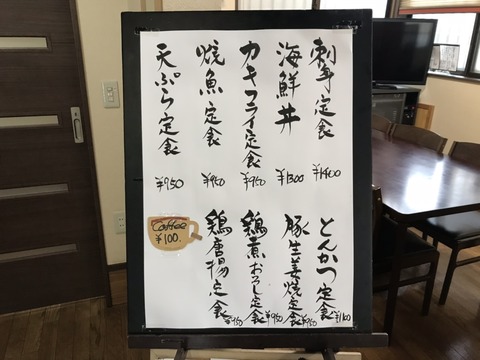 刺身定食
¥1400
海鮮丼
¥1300
カキフライ定食
¥950
焼魚定食
¥950
天ぷら定食
¥950
とんかつ定食
¥1100
豚生姜焼定食
¥950
鶏煮おろし定食
¥950
鶏唐揚定食
¥950
Coffee
¥100.